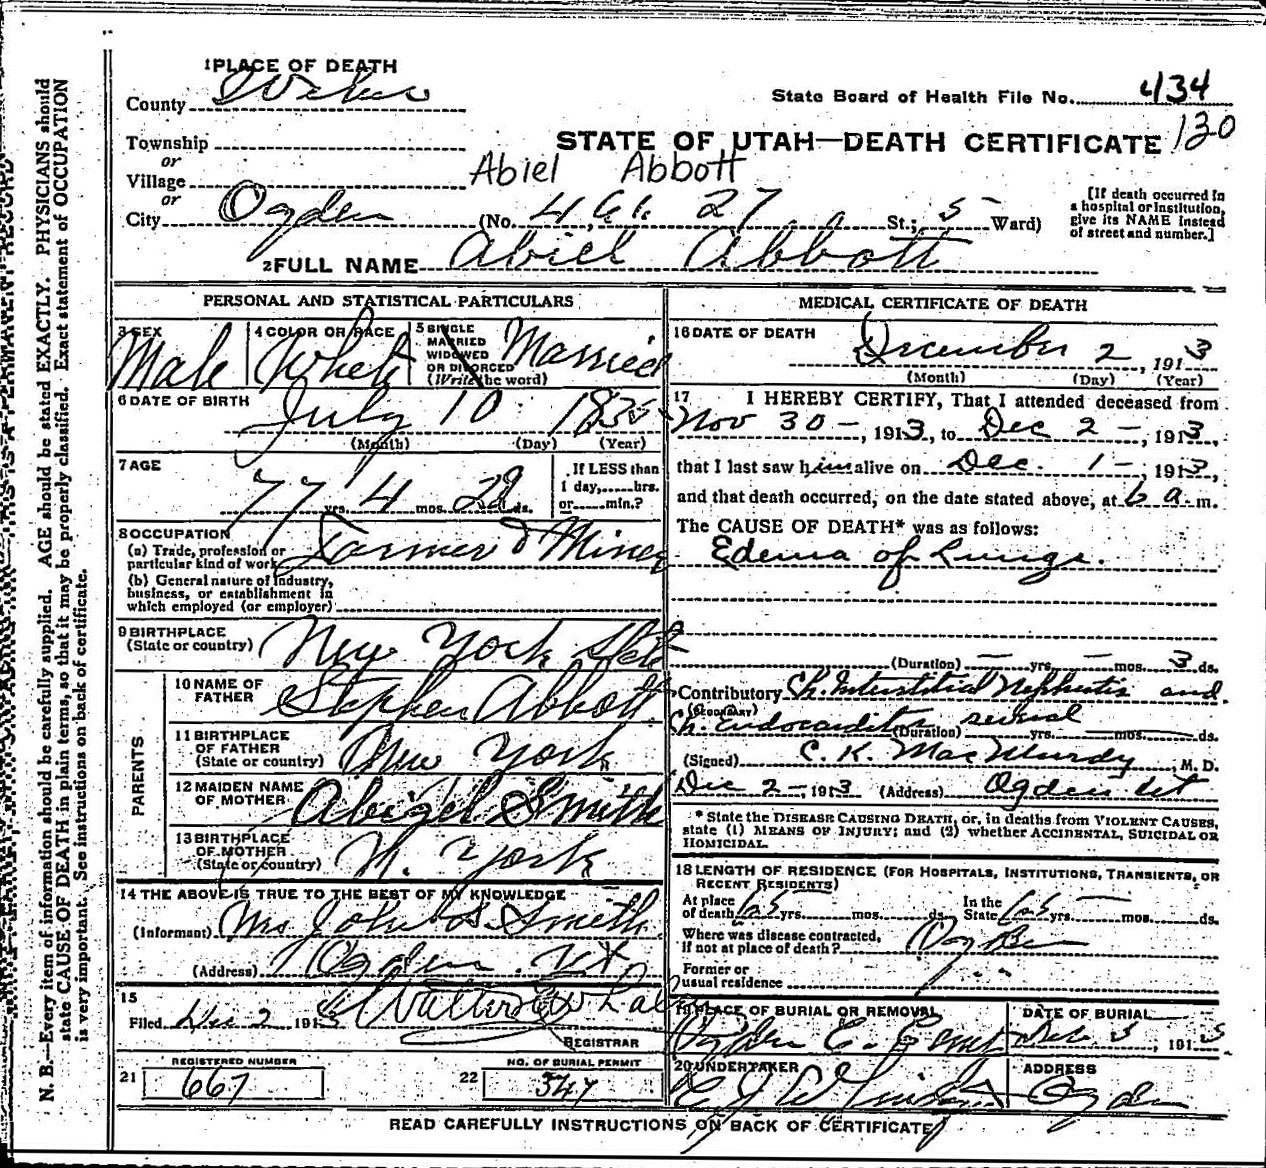 N. B.—Every item of information should be carefully supplied. AGE should be stated EXACTLY. PHYSICIANS should
state CAUSE OF DEATH in plain terms, so that it may be properly classified. Exact statement of OCCUPATION
is very important. See instructions on back of certificate.
1 PLACE OF DEATH
County Weber
State Board of Health File No. 434
Township
STATE OF UTAH—DEATH CERTIFICATE 130
or
Village
Abiel Abbott
or
City Ogden (No. 27 St.; 5 Ward)
[If death occurred in
a hospital or institution,
give its NAME instead
of street and number.]
2 FULL NAME Abiel Abbott
PERSONAL AND STATISTICAL PARTICULARS
3 SEX
Male
4 COLOR OR RACE
White
5 SINGLE
MARRIED
WIDOWED
OR DIVORCED
(Write the word)
Married
6 DATE OF BIRTH
July 10 1835
(Month) (Day) (Year)
7 AGE
77 yrs. 4 mos. 22 ds.
If LESS than
1 day, hrs.
or min.?
8 OCCUPATION
(a) Trade, profession or
particular kind of work
Farmer & Miner
(b) General nature of industry,
business, or establishment in
which employed (or employer)
9 BIRTHPLACE
(State or country)
New York State
PARENTS
10 NAME OF
FATHER
Stephen Abbott
11 BIRTHPLACE
OF FATHER
(State or country)
New York
12 MAIDEN NAME
OF MOTHER
Abigel Smith
13 BIRTHPLACE
OF MOTHER
(State or country)
N. York
14 THE ABOVE IS TRUE TO THE BEST OF MY KNOWLEDGE
(Informant) Mrs John S. Smith
(Address) Ogden Ut
15
Filed Dec 2 1913
REGISTRAR
REGISTERED NUMBER
21 667
NO. OF BURIAL PERMIT
22 547
MEDICAL CERTIFICATE OF DEATH
16 DATE OF DEATH
December 2, 1913
(Month) (Day) (Year)
17 I HEREBY CERTIFY, That I attended deceased from
Nov 30 -, 1913, to Dec 2 -, 1913,
that I last saw him alive on Dec. 1 -, 1913,
and that death occurred, on the date stated above, at 6 a. m.
The CAUSE OF DEATH* was as follows:
Edema of Lungs.
(Duration) — yrs. — mos. 3 ds.
Contributory Ch. Interstitial Nephritis and
(SECONDARY)
Ch. Endocarditis (Duration) several yrs. mos. ds.
(Signed) C. K. MacMurdy, M. D.
Dec 2-, 1913 (Address) Ogden Ut
* State the DISEASE CAUSING DEATH, or, in deaths from VIOLENT CAUSES,
state (1) MEANS OF INJURY; and (2) whether ACCIDENTAL, SUICIDAL OR
HOMICIDAL.
18 LENGTH OF RESIDENCE (FOR HOSPITALS, INSTITUTIONS, TRANSIENTS, OR
RECENT RESIDENTS)
At place
of death 65 yrs. mos. ds.
In the
State 65 yrs. mos. ds.
Where was disease contracted,
if not at place of death? Ogden
Former or
usual residence
19 PLACE OF BURIAL OR REMOVAL
Ogden C. Cemt
DATE OF BURIAL
Dec. 3, 1913
20 UNDERTAKER
ADDRESS
Ogden
READ CAREFULLY INSTRUCTIONS ON BACK OF CERTIFICATE